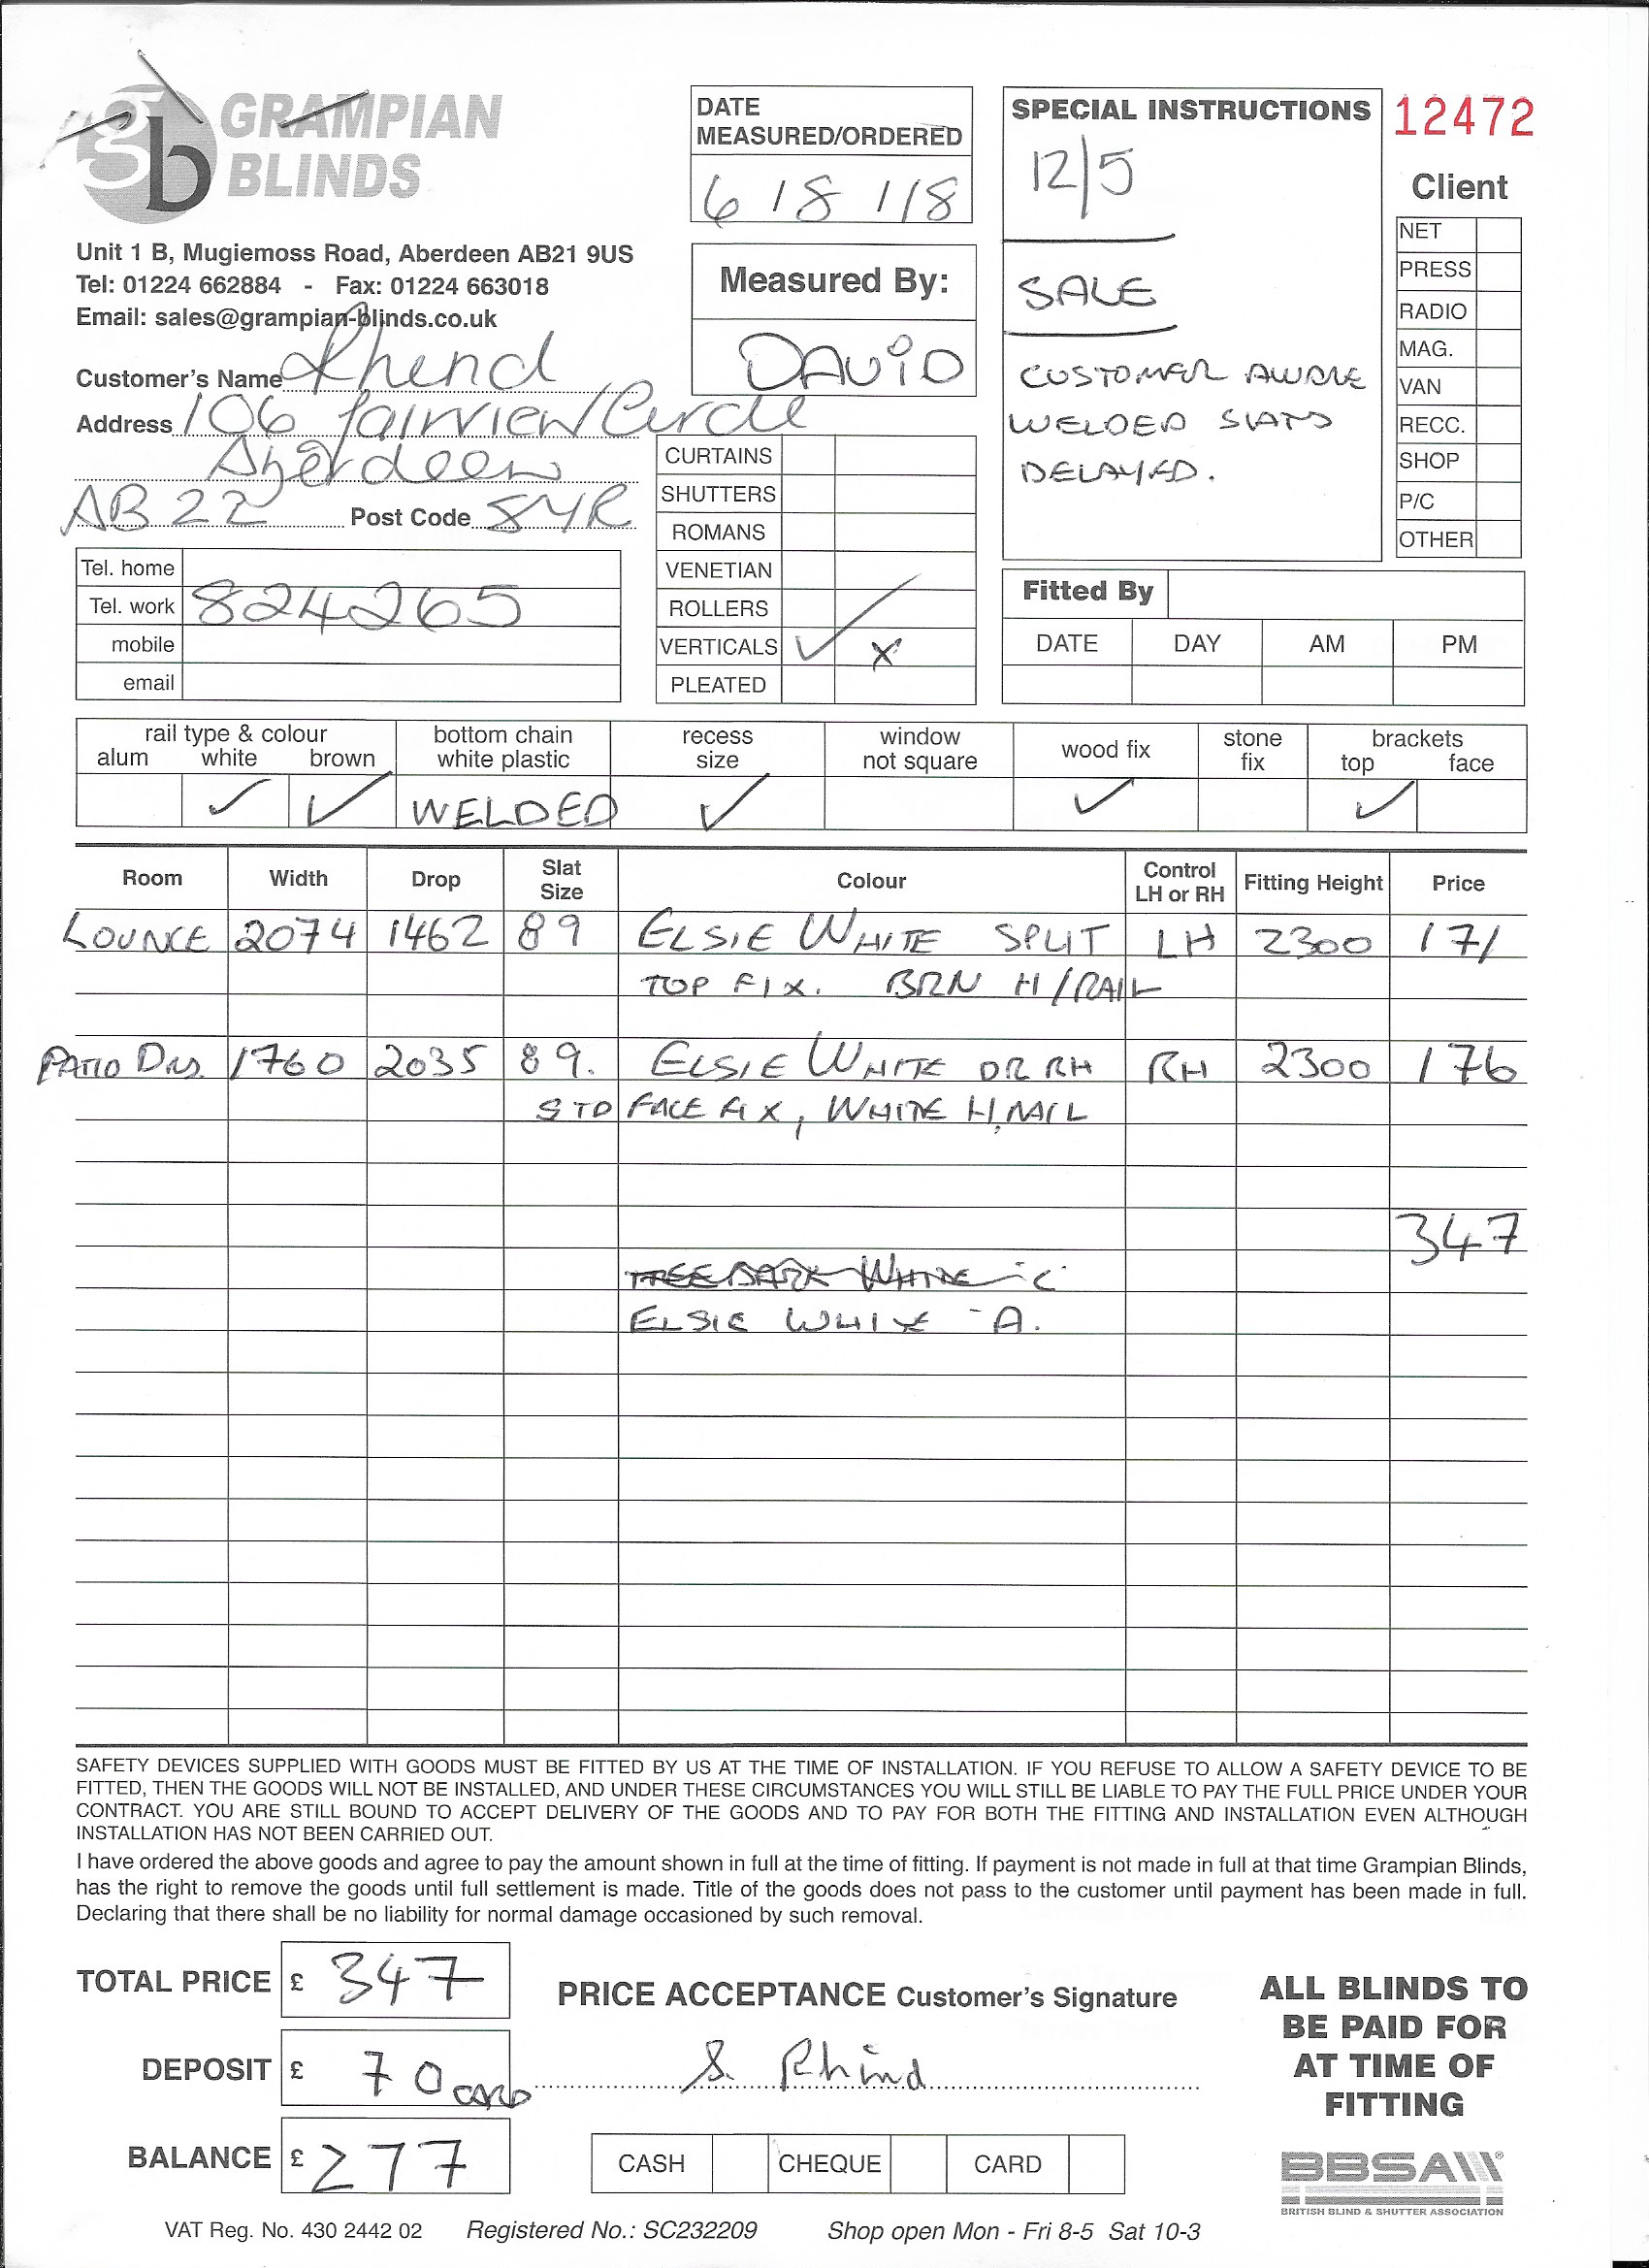 gb GRAMPIAN
BLINDS
Unit 1 B, Mugiemoss Road, Aberdeen AB21 9US
Tel: 01224 662884 - Fax: 01224 663018
Email: sales@grampian-blinds.co.uk
DATE
MEASURED/ORDERED
6 / 8 / 18
Measured By:
DAViD
SPECIAL INSTRUCTIONS
12/5
SALE
CUSTOMER AWARE
WELDED SLATS
DELAYED.
12472
Client
NET
PRESS
RADIO
MAG.
VAN
RECC.
SHOP
P/C
OTHER
Customer's Name Rhind
Address 106 Fairview Circle
Aberdeen
AB 22 Post Code 8YR
Tel. home
Tel. work 824265
mobile
email
CURTAINS
SHUTTERS
ROMANS
VENETIAN
ROLLERS
VERTICALS ✓ x
PLEATED
Fitted By
DATE DAY AM PM
rail type & colour bottom chain recess window wood fix stone brackets
alum white brown white plastic size not square fix top face
✓ ✓ WELDED ✓ ✓ ✓
Room Width Drop Slat Size Colour Control LH or RH Fitting Height Price
LOUNGE 2074 1462 89 ELSIE WHITE SPLIT LH 2300 171
TOP FIX. BRN H/RAIL
PATIO DRS 1760 2035 89. ELSIE WHITE DR RH RH 2300 176
STD FACE FIX, WHITE H/RAIL
347
TREEBARK WHITE - C
ELSIE WHITE - A.
SAFETY DEVICES SUPPLIED WITH GOODS MUST BE FITTED BY US AT THE TIME OF INSTALLATION. IF YOU REFUSE TO ALLOW A SAFETY DEVICE TO BE
FITTED, THEN THE GOODS WILL NOT BE INSTALLED, AND UNDER THESE CIRCUMSTANCES YOU WILL STILL BE LIABLE TO PAY THE FULL PRICE UNDER YOUR
CONTRACT. YOU ARE STILL BOUND TO ACCEPT DELIVERY OF THE GOODS AND TO PAY FOR BOTH THE FITTING AND INSTALLATION EVEN ALTHOUGH
INSTALLATION HAS NOT BEEN CARRIED OUT.
I have ordered the above goods and agree to pay the amount shown in full at the time of fitting. If payment is not made in full at that time Grampian Blinds,
has the right to remove the goods until full settlement is made. Title of the goods does not pass to the customer until payment has been made in full.
Declaring that there shall be no liability for normal damage occasioned by such removal.
TOTAL PRICE £ 347
DEPOSIT £ 70 CARD
BALANCE £ 277
PRICE ACCEPTANCE Customer's Signature
S. Rhind
CASH CHEQUE CARD
ALL BLINDS TO
BE PAID FOR
AT TIME OF
FITTING
BBSA
BRITISH BLIND & SHUTTER ASSOCIATION
VAT Reg. No. 430 2442 02 Registered No.: SC232209 Shop open Mon - Fri 8-5 Sat 10-3